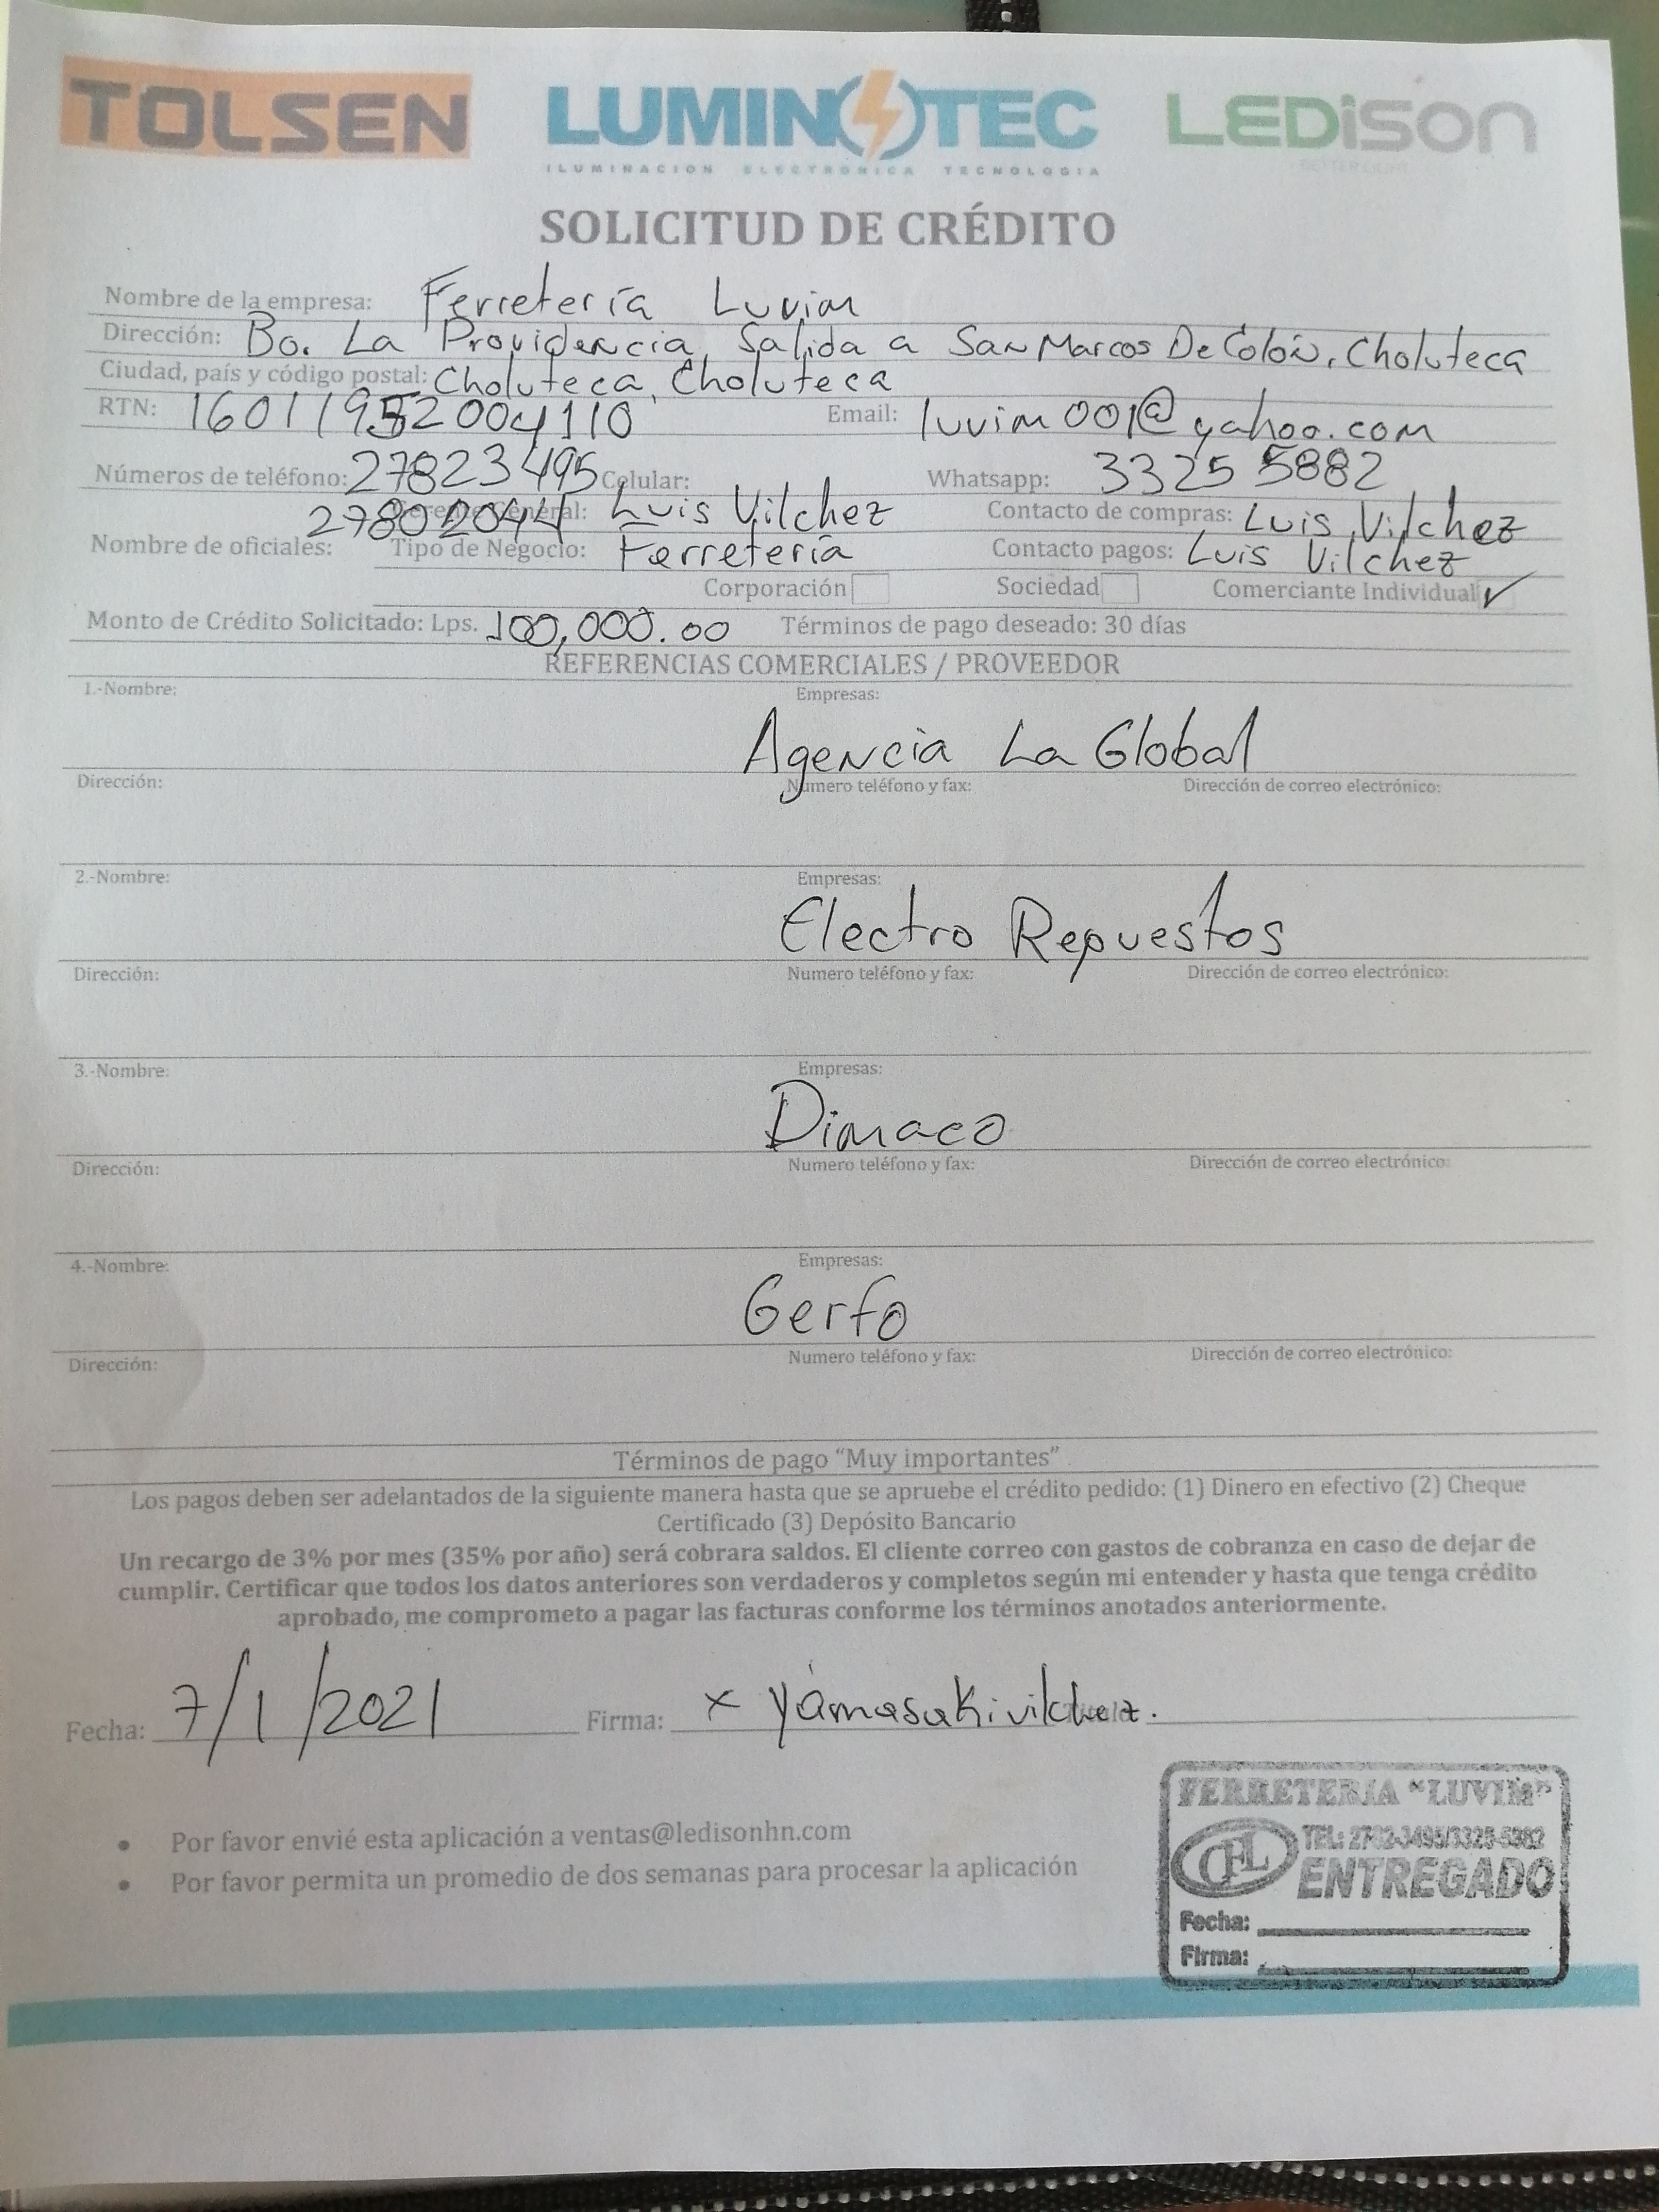 TOLSEN LUMINOTEC LEDiSON
ILUMINACION ELECTRONICA TECNOLOGIA BETTER LIGHT
SOLICITUD DE CRÉDITO
Nombre de la empresa: Ferretería Luvim
Dirección: Bo. La Providencia, Salida a San Marcos De Colón, Choluteca
Ciudad, país y código postal: Choluteca, Choluteca
RTN: 16011952004110 Email: luvim001@yahoo.com
Números de teléfono: 27823495 Celular: Whatsapp: 3325 5882
27802044 Gerente General: Luis Vilchez Contacto de compras: Luis Vilchez
Nombre de oficiales: Tipo de Negocio: Ferretería Contacto pagos: Luis Vilchez
Corporación Sociedad Comerciante Individual ✓
Monto de Crédito Solicitado: Lps. 100,000.00 Términos de pago deseado: 30 días
REFERENCIAS COMERCIALES / PROVEEDOR
1.-Nombre: Empresas:
Agencia La Global
Dirección: Numero teléfono y fax: Dirección de correo electrónico:
2.-Nombre: Empresas:
Electro Repuestos
Dirección: Numero teléfono y fax: Dirección de correo electrónico:
3.-Nombre: Empresas:
Dimaco
Dirección: Numero teléfono y fax: Dirección de correo electrónico:
4.-Nombre: Empresas:
Gerfo
Dirección: Numero teléfono y fax: Dirección de correo electrónico:
Términos de pago “Muy importantes”
Los pagos deben ser adelantados de la siguiente manera hasta que se apruebe el crédito pedido: (1) Dinero en efectivo (2) Cheque
Certificado (3) Depósito Bancario
Un recargo de 3% por mes (35% por año) será cobrara saldos. El cliente correo con gastos de cobranza en caso de dejar de
cumplir. Certificar que todos los datos anteriores son verdaderos y completos según mi entender y hasta que tenga crédito
aprobado, me comprometo a pagar las facturas conforme los términos anotados anteriormente.
Fecha: 7/1/2021 Firma: x yamasakivilchez.
FERRETERIA "LUVIM"
• Por favor envié esta aplicación a ventas@ledisonhn.com
TEL: 2782-3495/3325-5882
• Por favor permita un promedio de dos semanas para procesar la aplicación
CFL ENTREGADO
Fecha:
Firma: